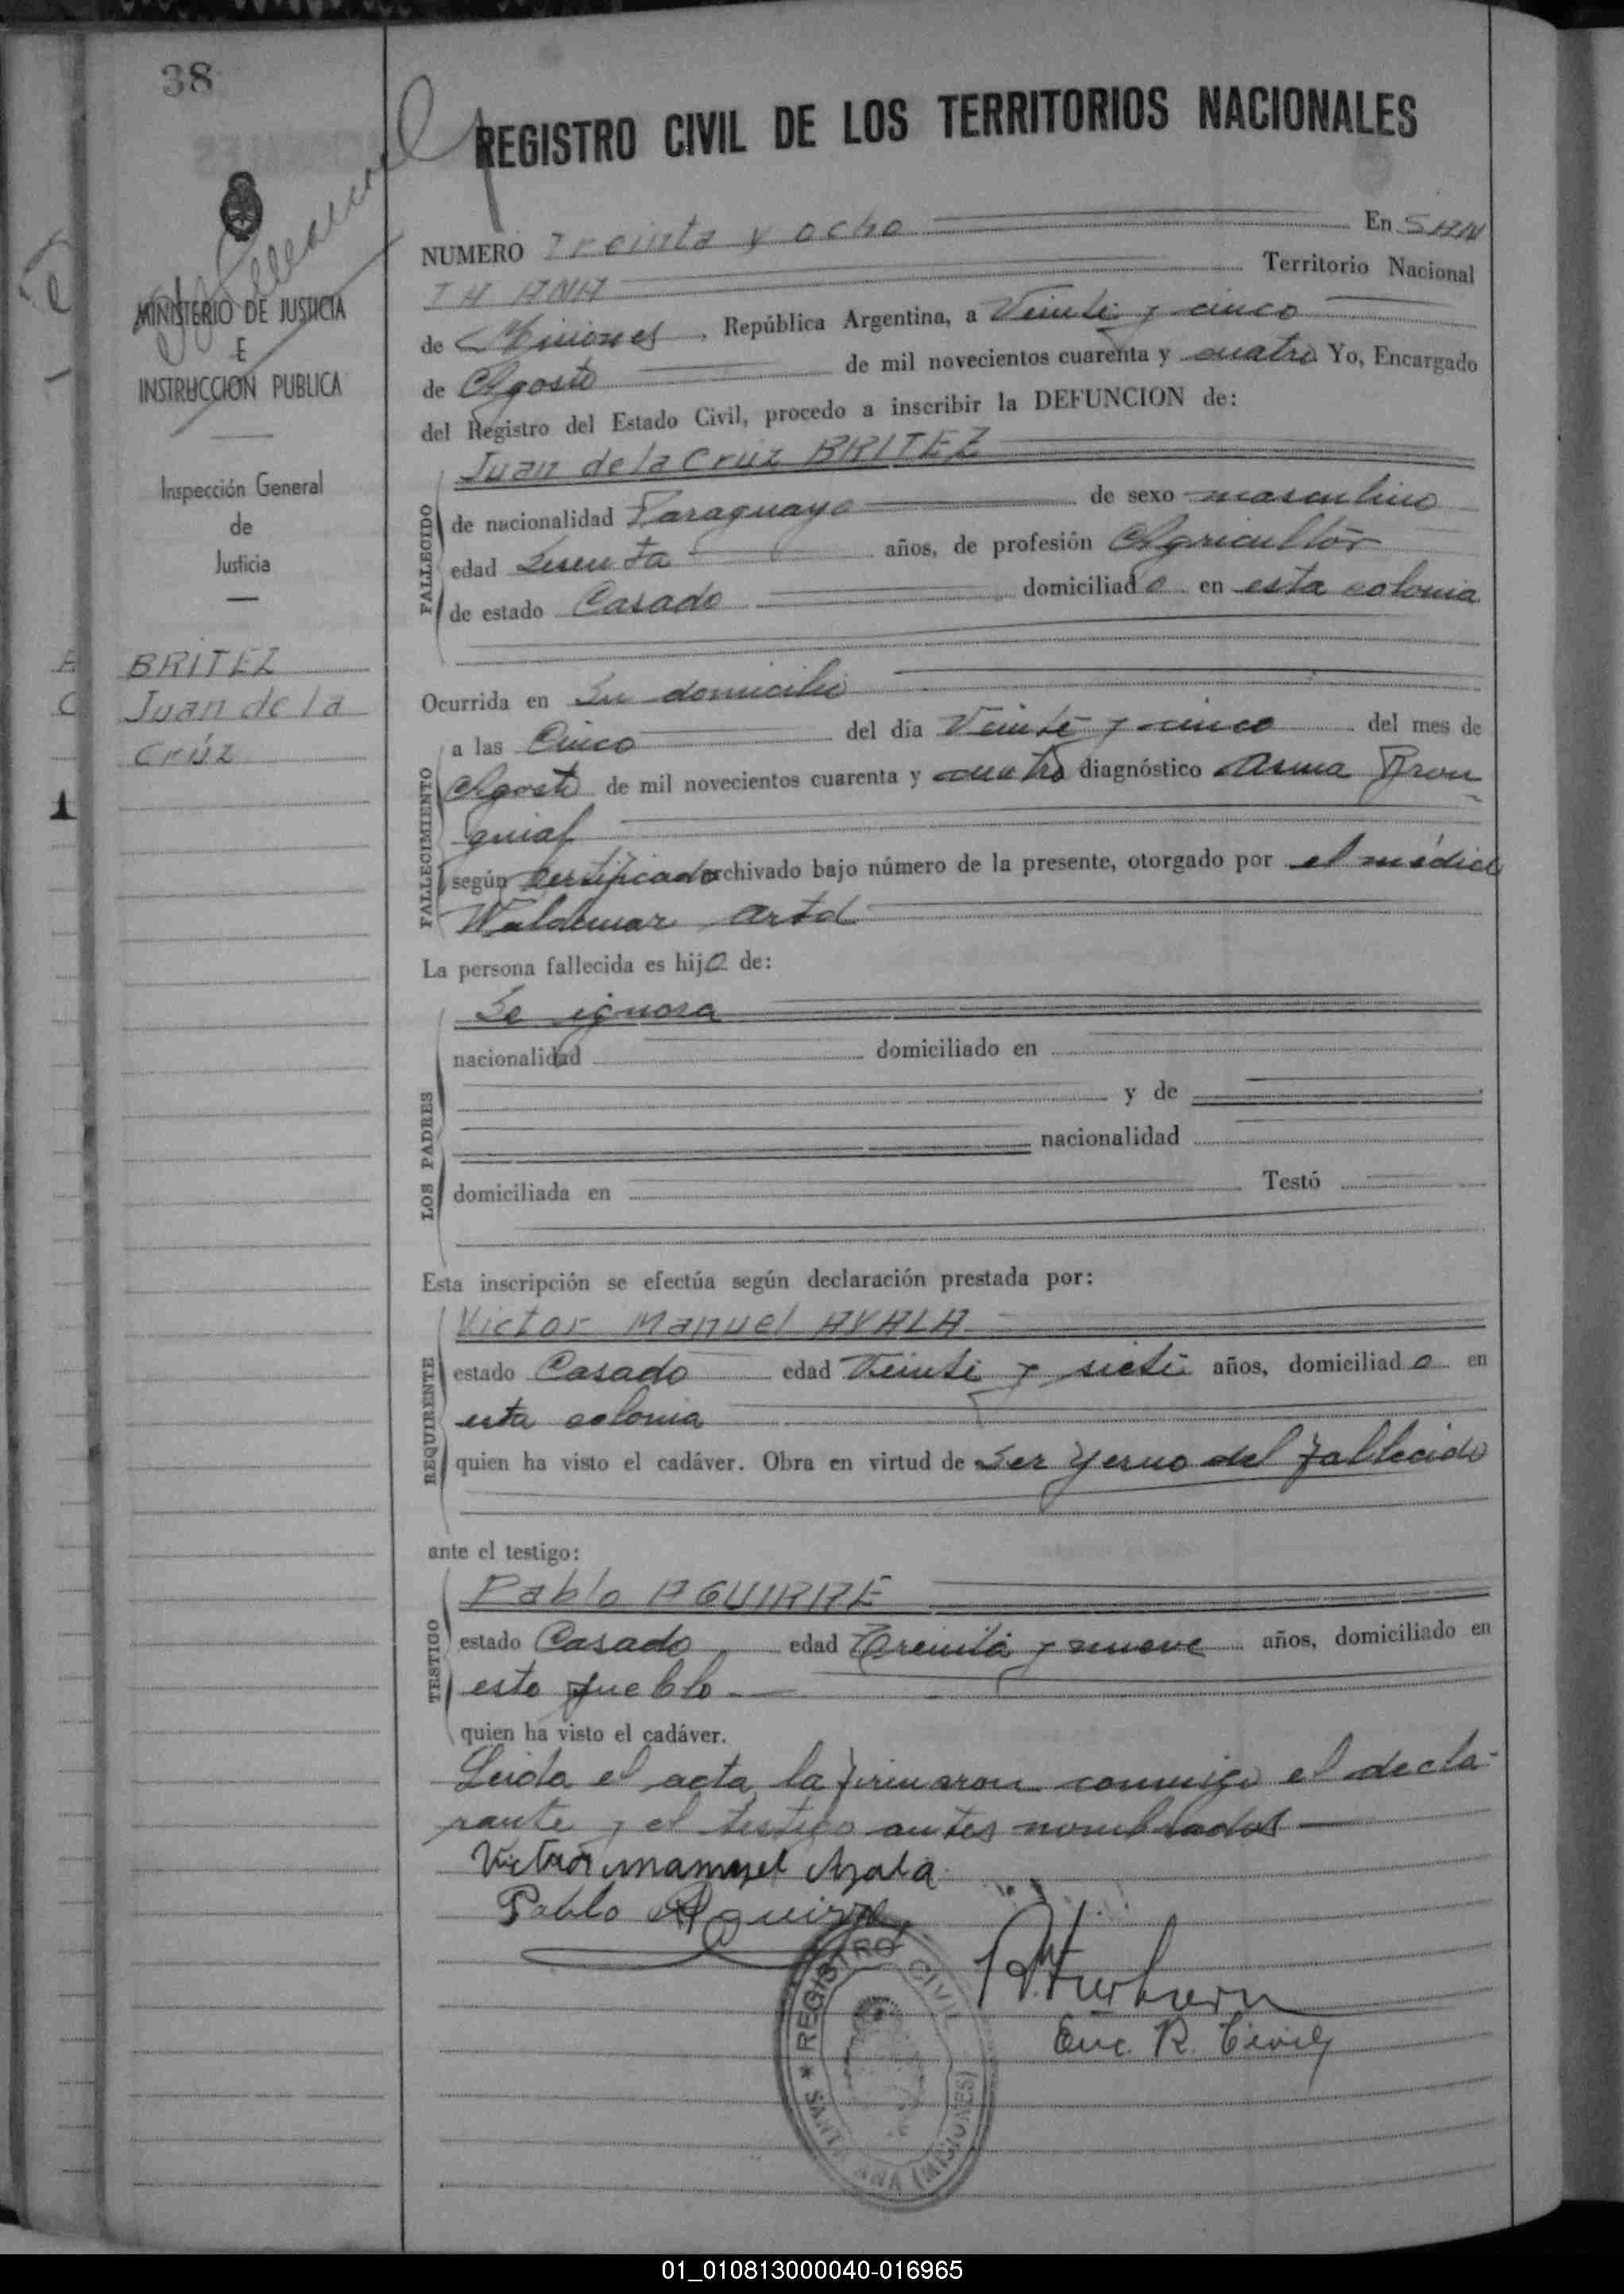 38
REGISTRO CIVIL DE LOS TERRITORIOS NACIONALES
MINISTERIO DE JUSTICIA
E
INSTRUCCION PUBLICA
Inspección General
de
Justicia
BRITEZ
Juan de la
Crúz
NUMERO Treinta y ocho En SAN
TA ANA Territorio Nacional
de Misiones, República Argentina, a Veinte y cinco
de Agosto de mil novecientos cuarenta y cuatro Yo, Encargado
del Registro del Estado Civil, procedo a inscribir la DEFUNCION de:
Juan de la Crúz BRITEZ
FALLECIDO
de nacionalidad Paraguaya de sexo masculino
edad Sesenta años, de profesión Agricultor
de estado Casado domiciliado en esta colonia
Ocurrida en Su domicilio
FALLECIMIENTO
a las Cinco del día Veinte y cinco del mes de
Agosto de mil novecientos cuarenta y cuatro diagnóstico Asma Bron
quial
según certificado archivado bajo número de la presente, otorgado por el médico
Waldemar Artd
La persona fallecida es hijo de:
LOS PADRES
Se ignora
nacionalidad domiciliado en
y de
nacionalidad
domiciliada en Testó
Esta inscripción se efectúa según declaración prestada por:
REQUIRENTE
Victor Manuel AYALA
estado Casado edad Veinte y siete años, domiciliado en
esta colonia
quien ha visto el cadáver. Obra en virtud de Ser yerno del fallecido
ante el testigo:
TESTIGO
Pablo AGUIRRE
estado Casado edad Treinta y nueve años, domiciliado en
este pueblo
quien ha visto el cadáver.
Leida el acta, la firmaron conmigo el decla-
rante y el testigo antes nombrados
Victor manuel Ayala
Pablo Aguirre
Enc. R. Civil
REGISTRO CIVIL
SANTA ANA (MISIONES)
01_010813000040-016965